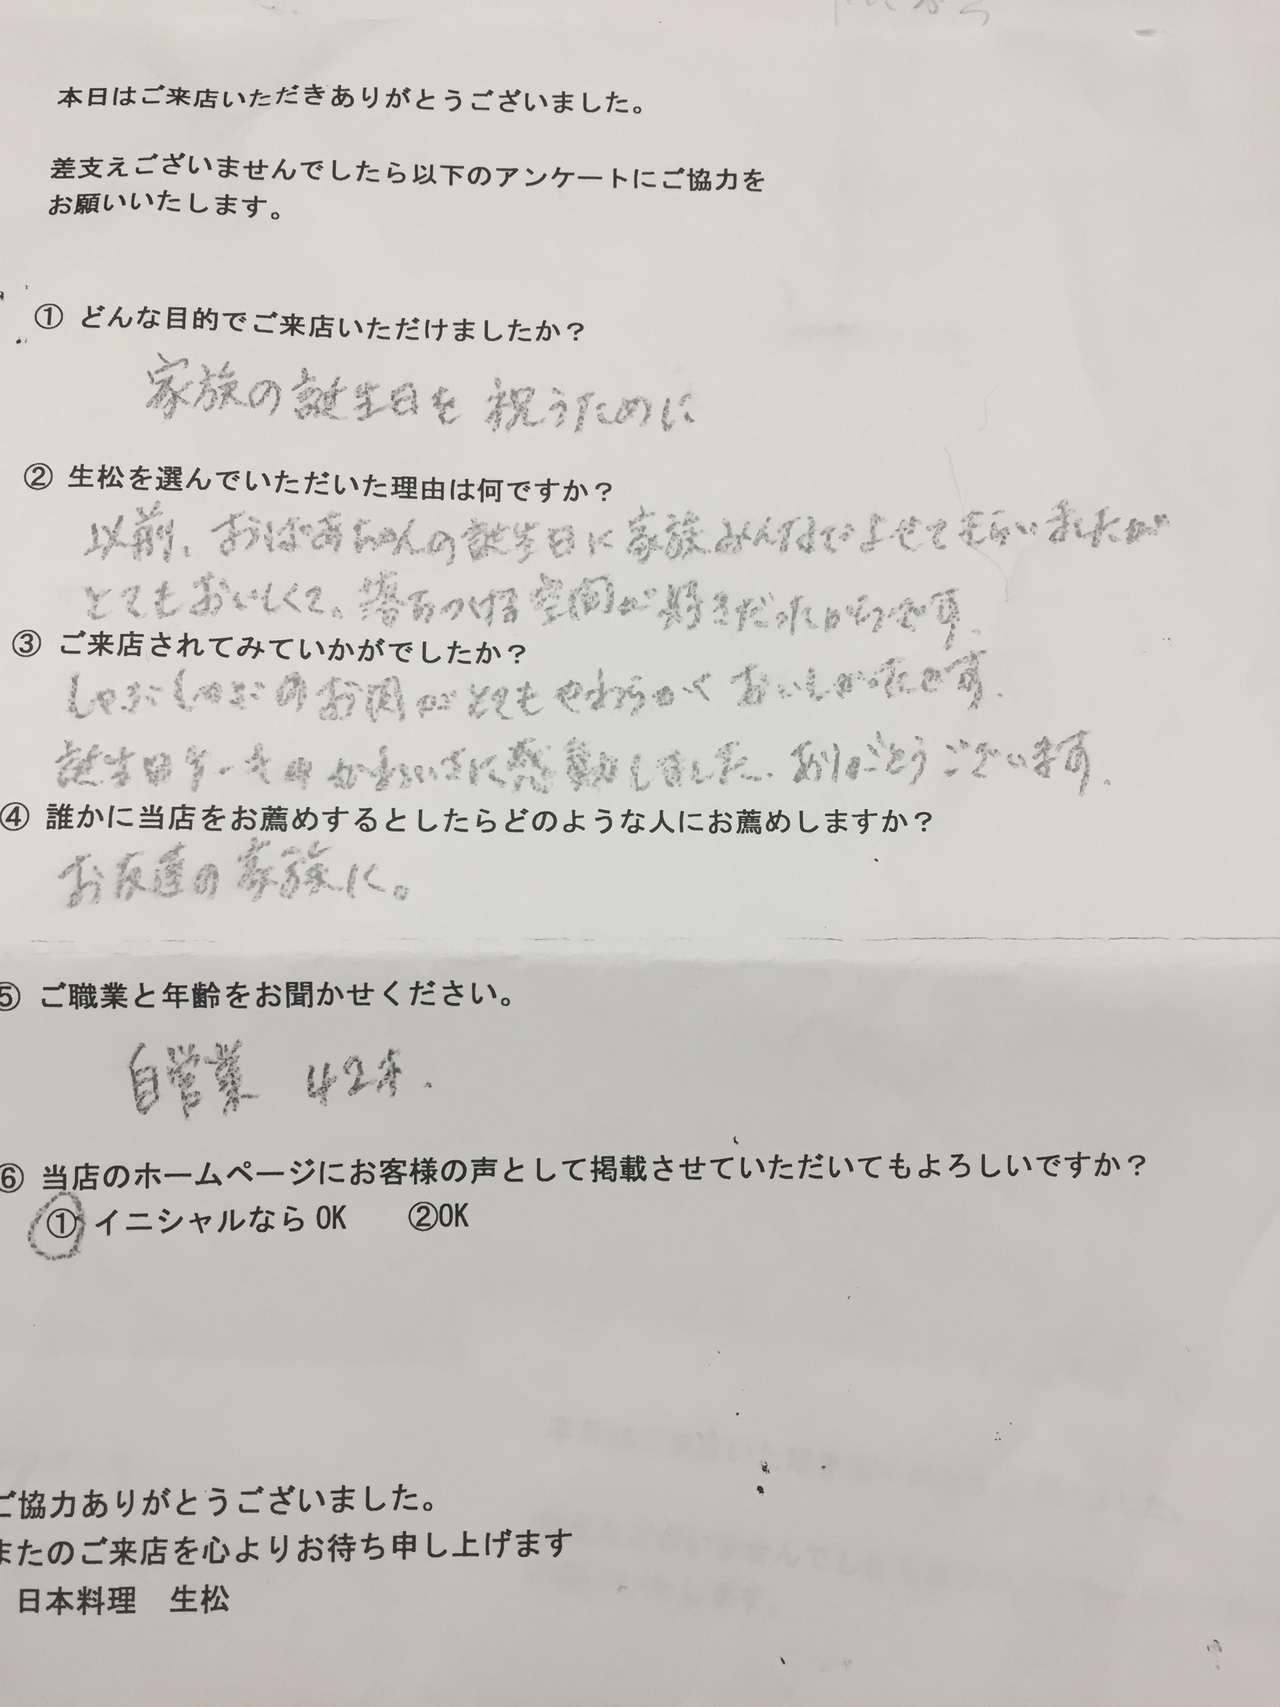 本日はご来店いただきありがとうございました。
差支えございませんでしたら以下のアンケートにご協力を
お願いいたします。
① どんな目的でご来店いただけましたか？
家族の誕生日を祝うために
② 生松を選んでいただいた理由は何ですか？
以前、おばあちゃんの誕生日に家族みんなでよせてもらいましたが
とてもおいしくて。落ちつける空間が好きだったからです。
③ ご来店されてみていかがでしたか？
しゃぶしゃぶのお肉がとてもやわらかくおいしかったです。
誕生日ケーキのかわいさに感動しました。ありがとうございます。
④ 誰かに当店をお薦めするとしたらどのような人にお薦めしますか？
お友達の家族に。
⑤ ご職業と年齢をお聞かせください。
自営業 42才.
⑥ 当店のホームページにお客様の声として掲載させていただいてもよろしいですか？
① イニシャルならOK ②OK
ご協力ありがとうございました。
またのご来店を心よりお待ち申し上げます
日本料理 生松